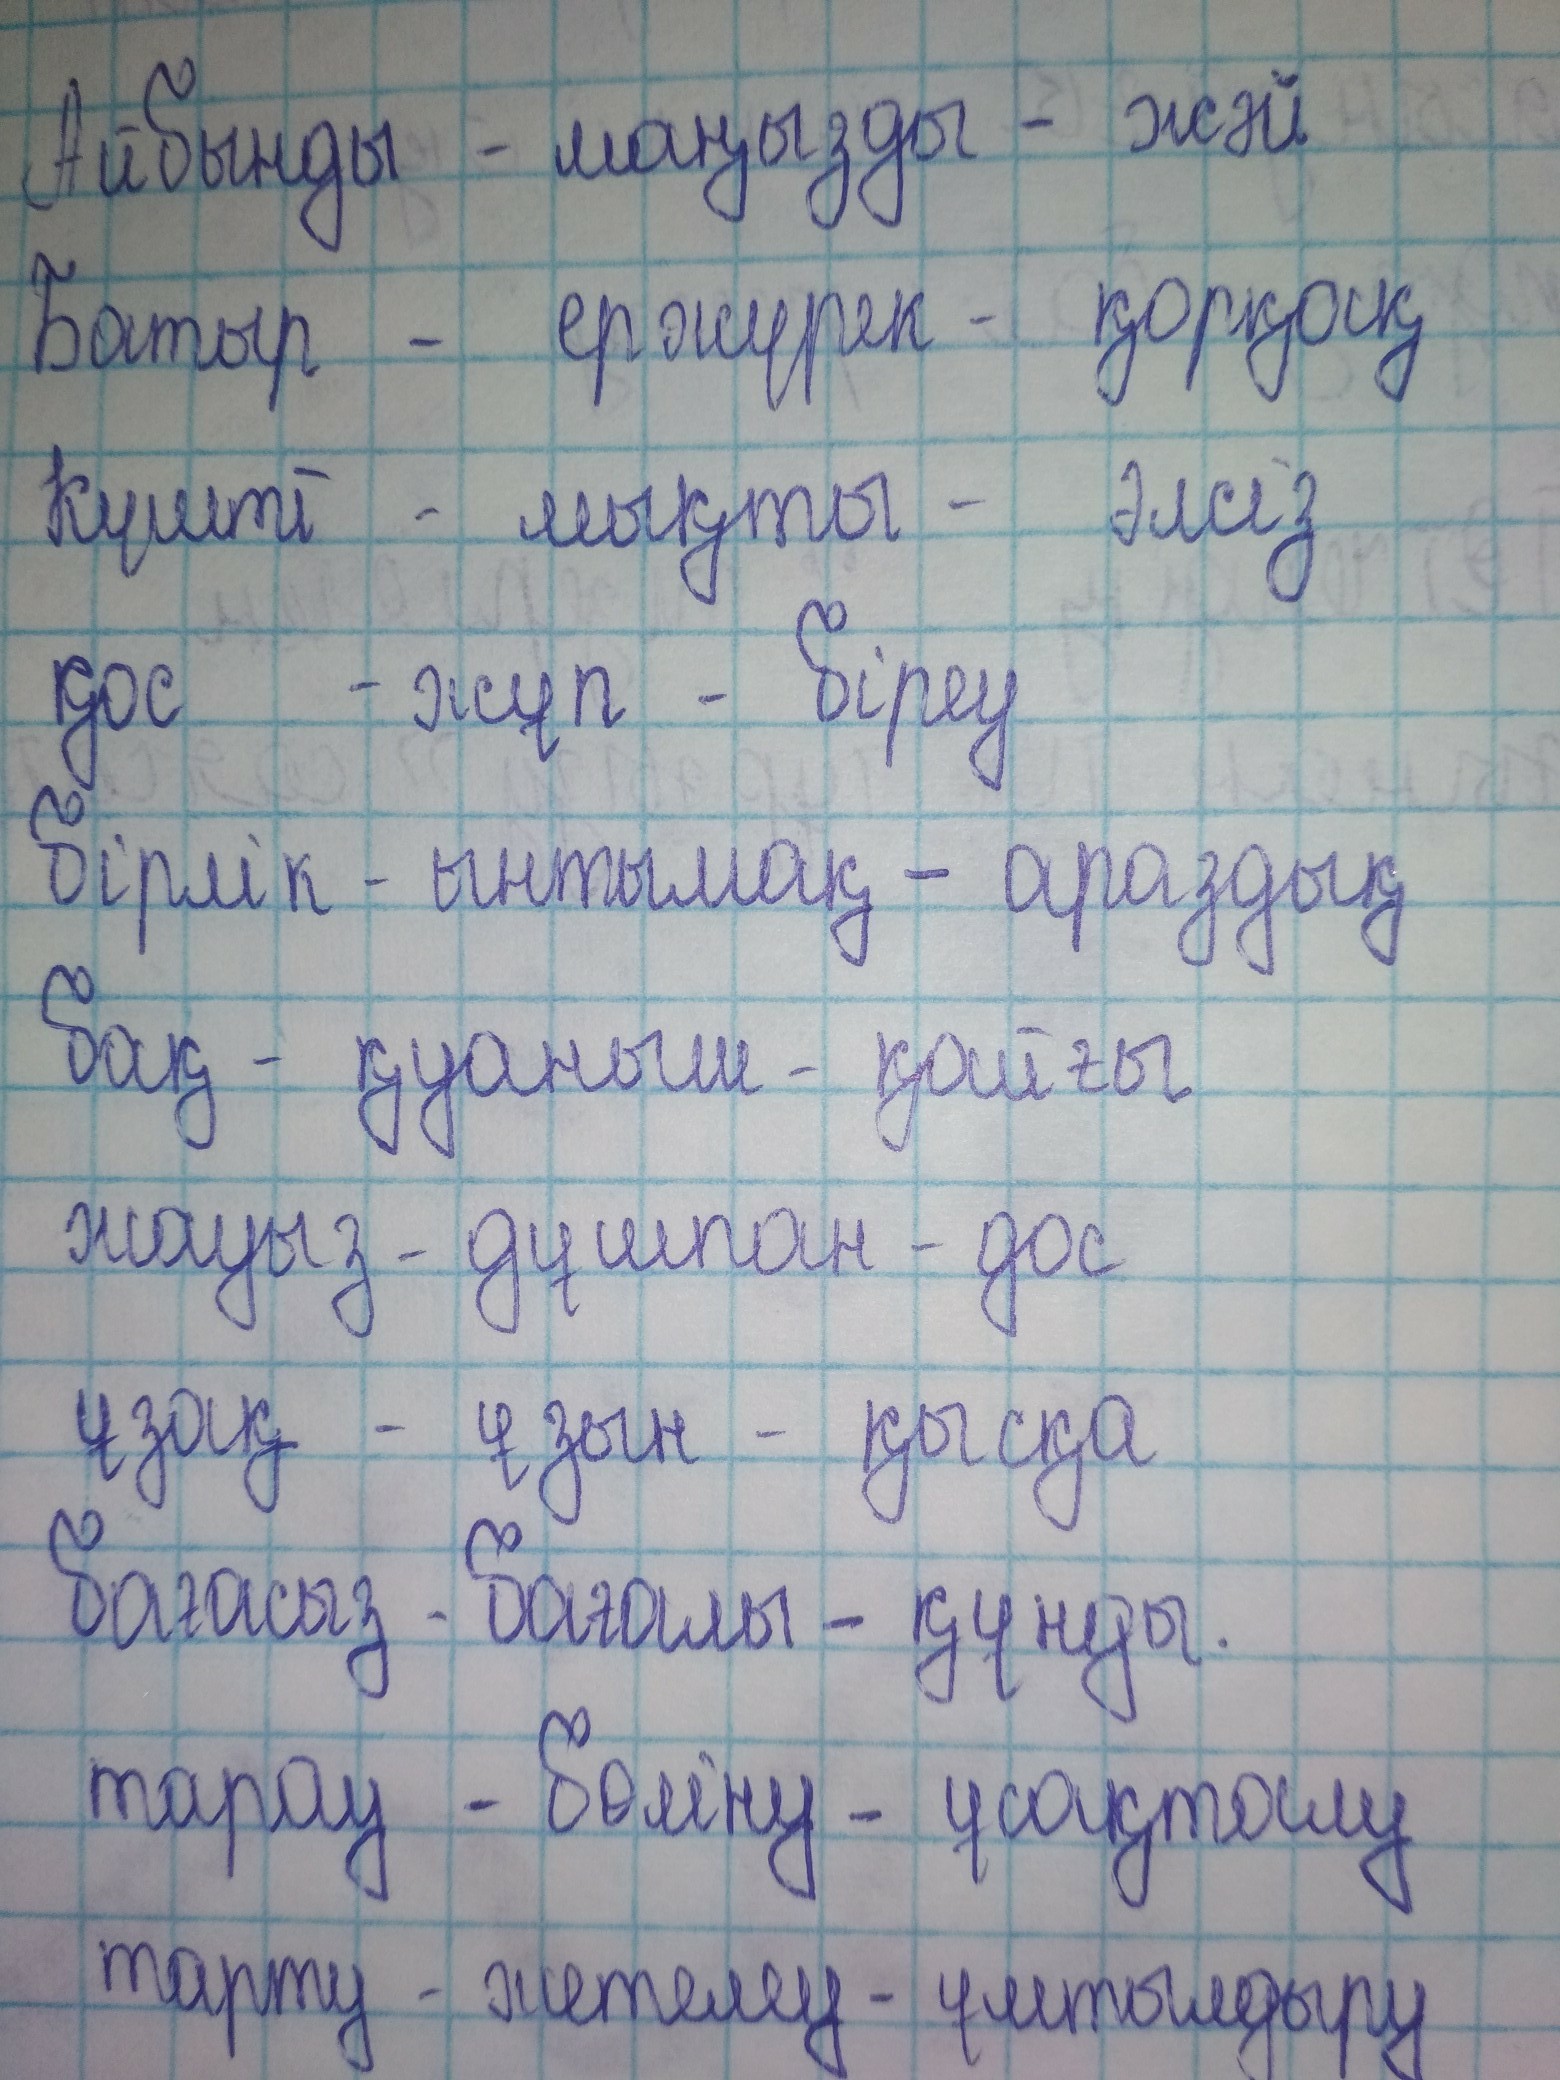 Айбынды - маңызды - жәй
Батыр - ержүрек - қорқақ
Күшті - мықты - әлсіз
қос - жұп - біреу
бірлік - ынтымақ - араздық
бақ - қуаныш - қайғы
жауыз - дұшпан - дос
ұзақ - ұзын - қысқа
бағасыз - бағалы - құнды.
тарау - бөліну - ұсақталу
тарту - жетелеу - ұмтылдыру